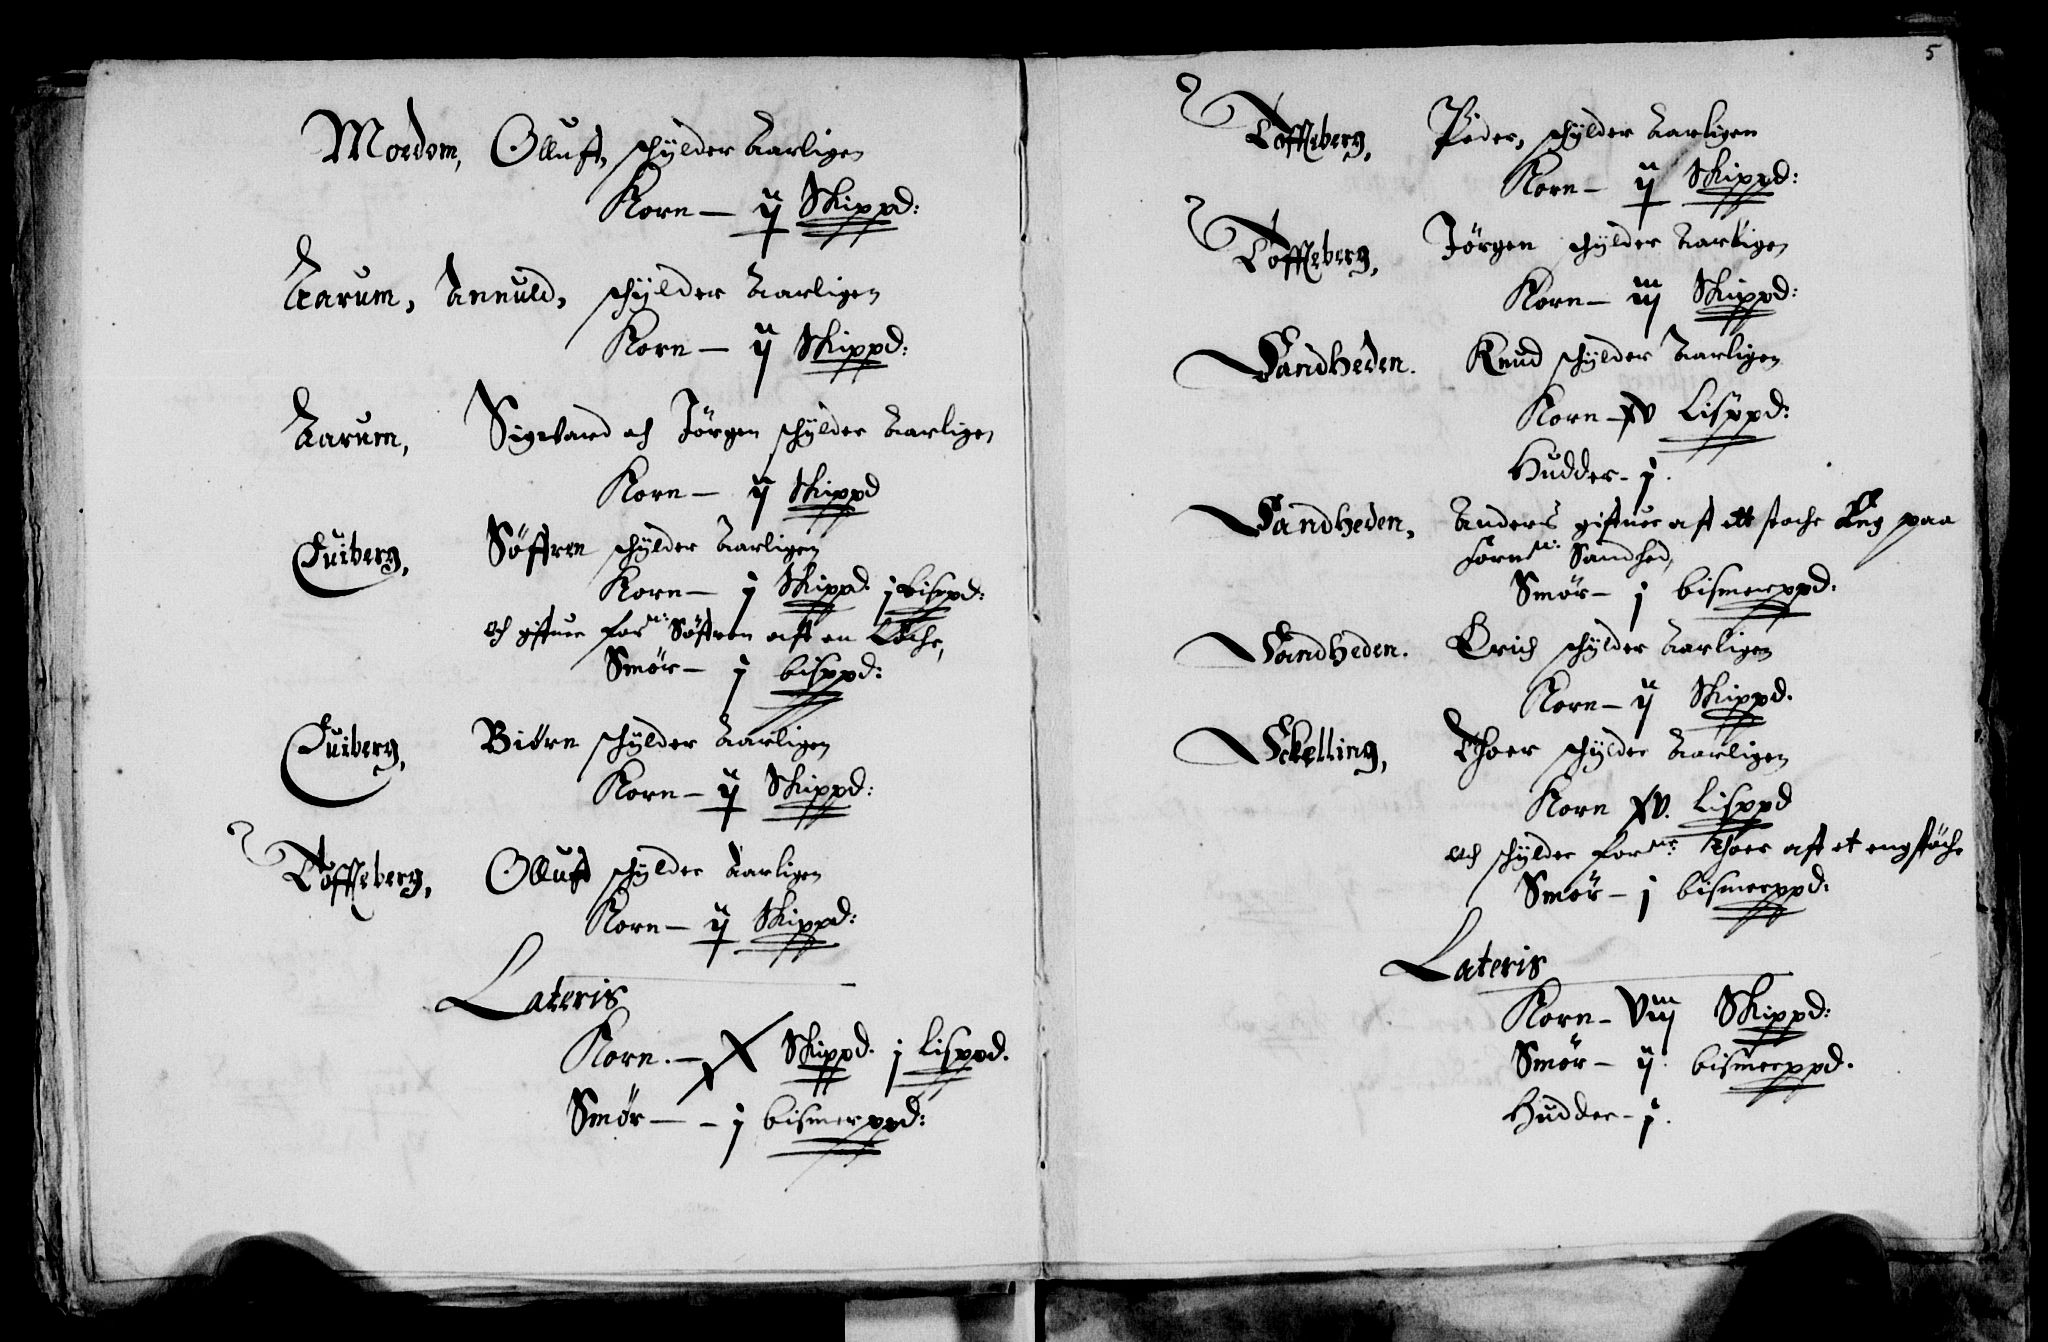 Moedom, Olluff, schÿlder Aarligen
Korn — ij Skippd:
Aarum, Annuld, schÿlder Aarligen
Korn — ij Skippd:
Aarum, Sigvard och Jörgen schÿlder Aarligen
Korn — ij Skippd
Euiberg, Söffren schÿlder Aarligen
Korn — j Skippd. j bisppd:
och gifuer forne: Söffren aff en Löche,
Smör — j bisppd:
Euiberg, Biörn schÿlder Aarligen
Korn — ij Skippd:
Töffteberg, Olluff schÿlder Aarligen
Korn — ij Skippd:
Lateris
Korn. — X Skippd. j Lisppd.
Smör — - j bismerppd:
5
Töffteberg, Peder, schÿlder Aarligen
Korn — ij Skippd:
Töffteberg, Jörgen schÿlder Aarligen
Korn — iij Skippd:
Sandheden. Knud schÿlder Aarligen
Korn — xv Lisppd:
Hudder - j.
Sandheden, Anders gifuer aff ett støche Eng paa
forne: Sandhed,
Smör — j bismerppd:
Sandheden. Erich schÿlder Aarligen
Korn — ij Skippd.
Schelling, Thoer schÿlder Aarligen
Korn xv. Lisppd
och schÿlder forne: Thoer aff et engstöche
Smör — j bismerppd:
Lateris
Korn — Viij Skippd:
Smör — ij. bismerppd.
Hudder - j.